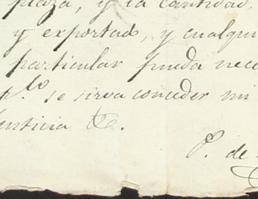 plaza, y la cantidad
y exportad, y cualqui
particular pueda nece
p.lo se sirva conceder mi
enticia &.
P. de